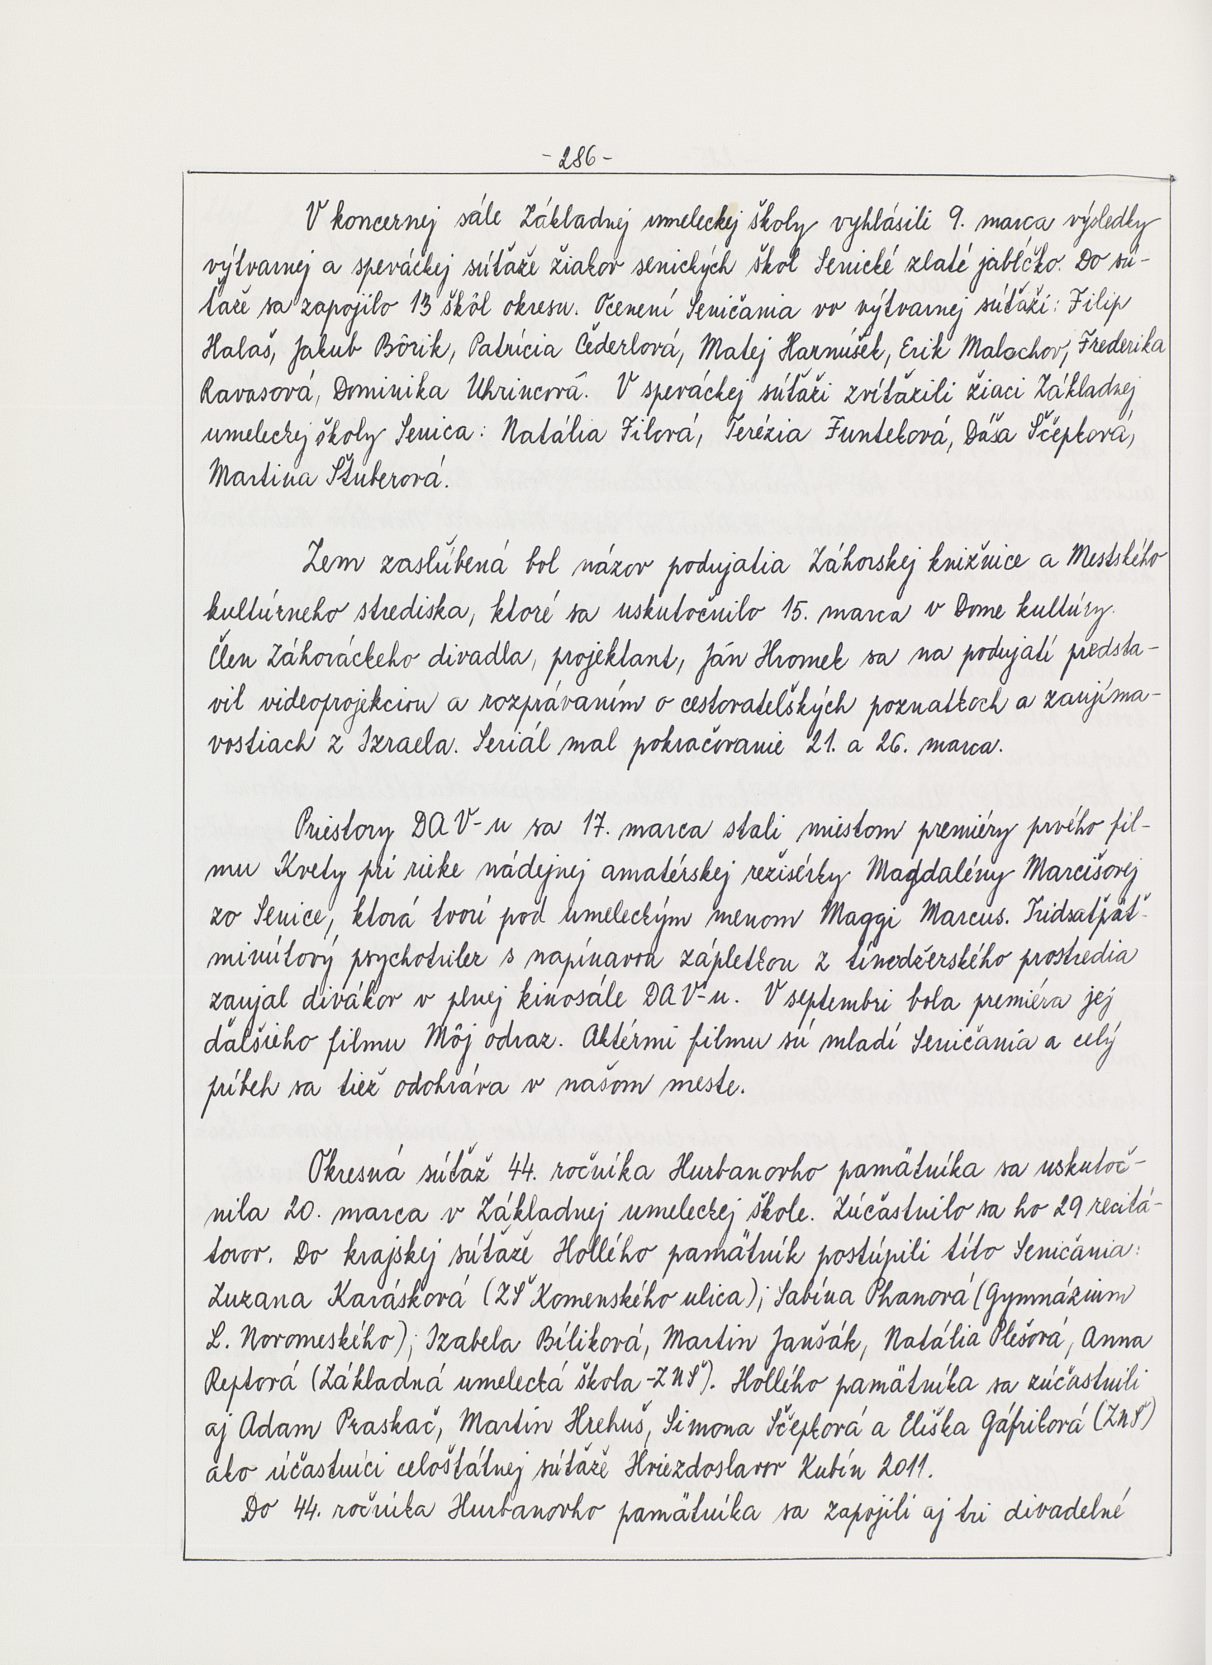 - 286 -
V koncernej sále Základnej umeleckej školy vyhlásili 9. marca výsledky
výtvarnej a speváckej súťaže žiakov senických škol Senické zlaté jabĺčko. Do sú-
ťaže sa zapojilo 13 škôl okresu. Ocenení Seničania vo výtvarnej súťaži: Filip
Halaš, Jakub Bôrik, Patrícia Čederlová, Matej Harnúšek, Erik Malachov, Frederika
Ravasová, Dominika Uhrincová. V speváckej súťaži zvíťazili žiaci Základnej
umeleckej školy Senica: Natália Filová, Terézia Funteková, Dáša Ščepková,
Martina Štuberová.
Zem zasľúbená bol názov podujatia Záhorskej knižnice a Mestského
kultúrneho strediska, ktoré sa uskutočnilo 15. marca v Dome kultúry.
Člen Záhoráckeho divadla, projektant, Ján Hromek sa na podujatí predsta-
vil videoprojekciou a rozprávaním o cestovateľských poznatkoch a zaujíma-
vostiach z Izraela. Seriál mal pokračovanie 21. a 26. marca.
Priestory DAV-u sa 17. marca stali miestom premiéry prvého fil-
mu Kvety pri rieke nádejnej amatérskej režisérky Magdalény Marcišovej
zo Senice, ktorá tvorí pod umeleckým menom Maggi Marcus. Tridsaťpäť-
minútový psychotriler s napínavou zápletkou z tínedžerského prostredia
zaujal divákov v plnej kinosále DAV-u. V septembri bola premiéra jej
ďalšieho filmu Môj odraz. Aktérmi filmu sú mladí Seničania a celý
príbeh sa tiež odohráva v našom meste.
Okresná súťaž 44. ročníka Hurbanovho pamätníka sa uskutoč-
nila 20. marca v Základnej umeleckej škole. Zúčastnilo sa ho 29 recitá-
torov. Do krajskej súťaže Hollého pamätník postúpili títo Seničania:
Zuzana Karásková (ZŠ Komenského ulica); Sabína Phanová (Gymnázium
L. Novomeského); Izabela Bíliková, Martin Janšák, Natália Plešová, Anna
Reptová (Základná umelecká škola - ZUŠ). Hollého pamätníka sa zúčastnili
aj Adam Praskač, Martin Hrehuš, Simona Ščepková a Eliška Gáfriková (ZUŠ)
ako účastníci celoštátnej súťaže Hviezdoslavov Kubín 2011.
Do 44. ročníka Hurbanovho pamätníka sa zapojili aj tri divadelné